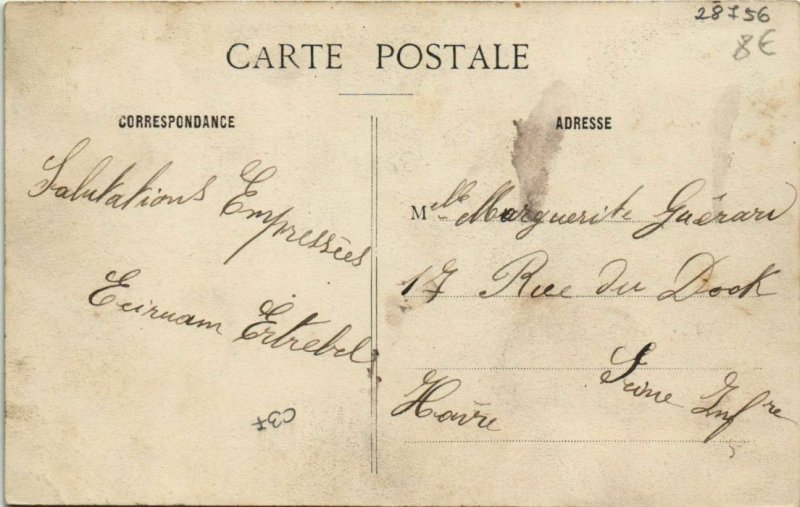 28756
8€
CARTE POSTALE
CORRESPONDANCE
ADRESSE
Salutations
Empressées
Eciruam Ertrebel
C37
Mlle Marguerite Guérard
17 Rue du Dock
Havre
Seine Infre